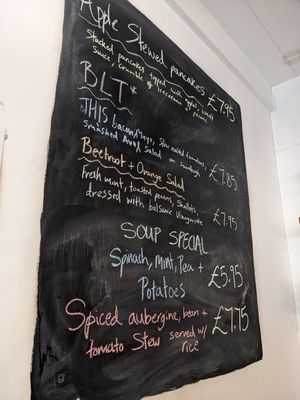 Apple Stewed pancakes £7.95
Stacked pancakes topped with
sauce, crumble & Icecream
pecans,
BLT*
THIS bacon, Mayo, Slow roasted tomatoes,
Smashed Avo, Salad on £7.85
Beetroot + Orange Salad
Fresh mint, toasted pecans, Shallots,
dressed with balsamic Vinaigrette £7.95
SOUP SPECIAL
Spinach, Mint, Pea + £5.95
Potatoes
Spiced aubergine, bean + £7.75
tomato Stew served w/
rice